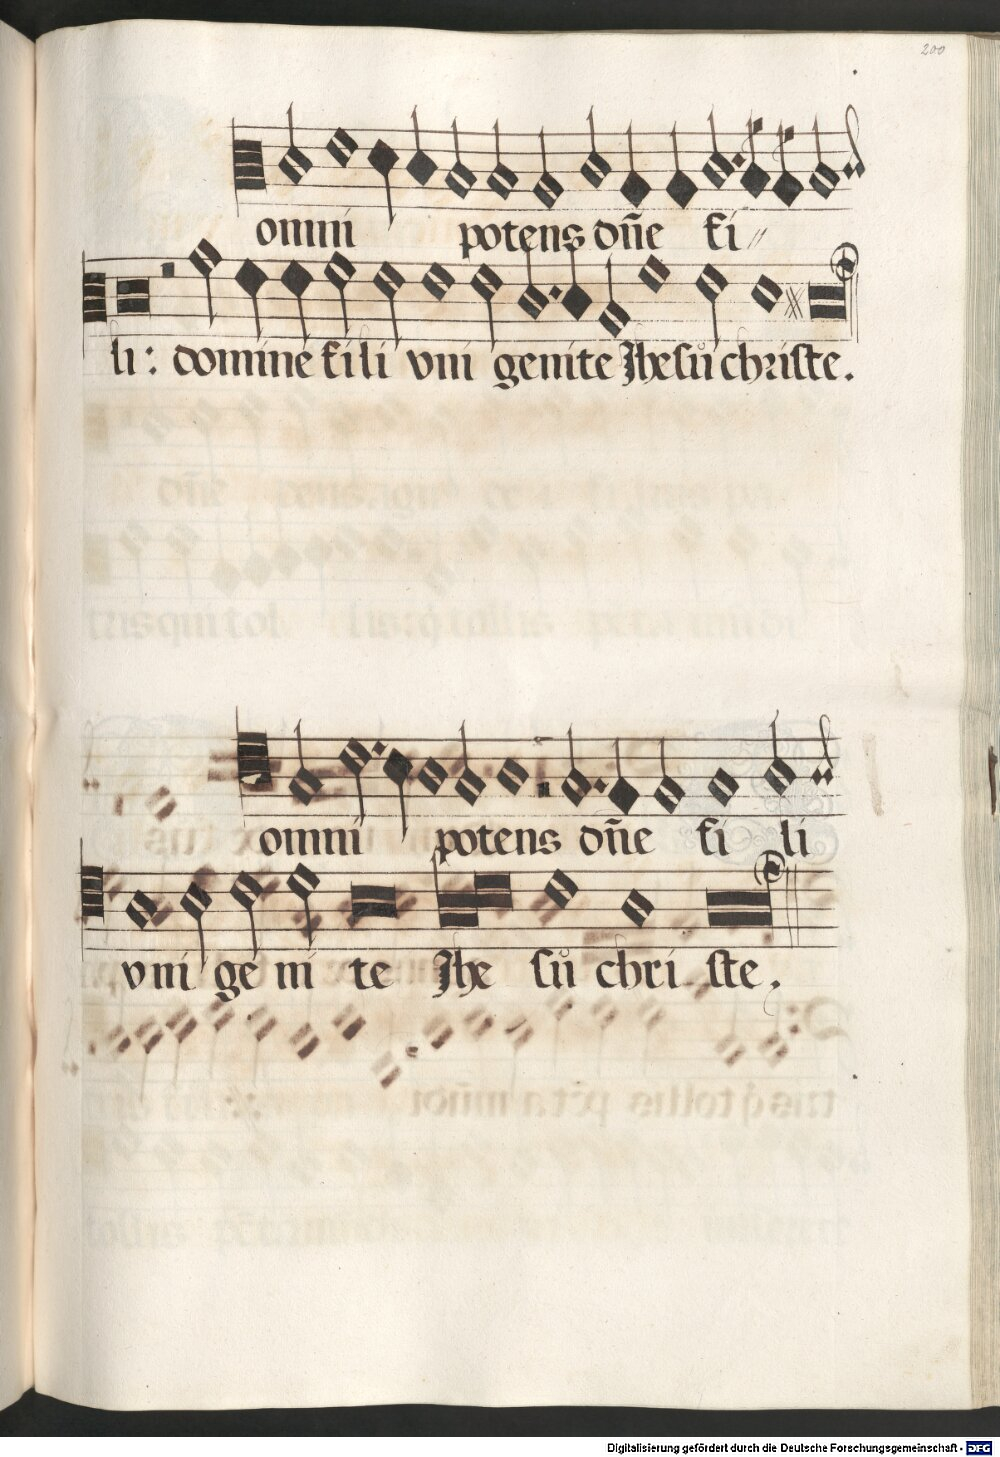 200
omni potens dn̄e fi //
li : domine fili vni genite Jhesů christe .
omni potens dn̄e fi li
vni ge ni te Jhe sů chri ste .
Digitalisierung gefördert durch die Deutsche Forschungsgemeinschaft - DFG